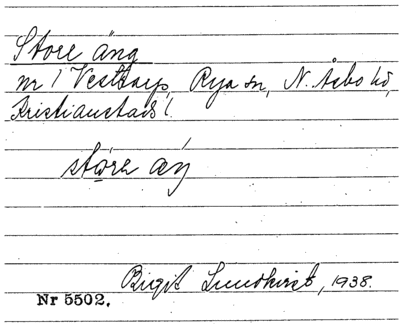 Store äng
nr 1 Vesttorp, Rya sn, N. Åsbo hd,
Kristianstads l.
store æŋ
Birgit Lundkvist, 1938.
Nr 5502.